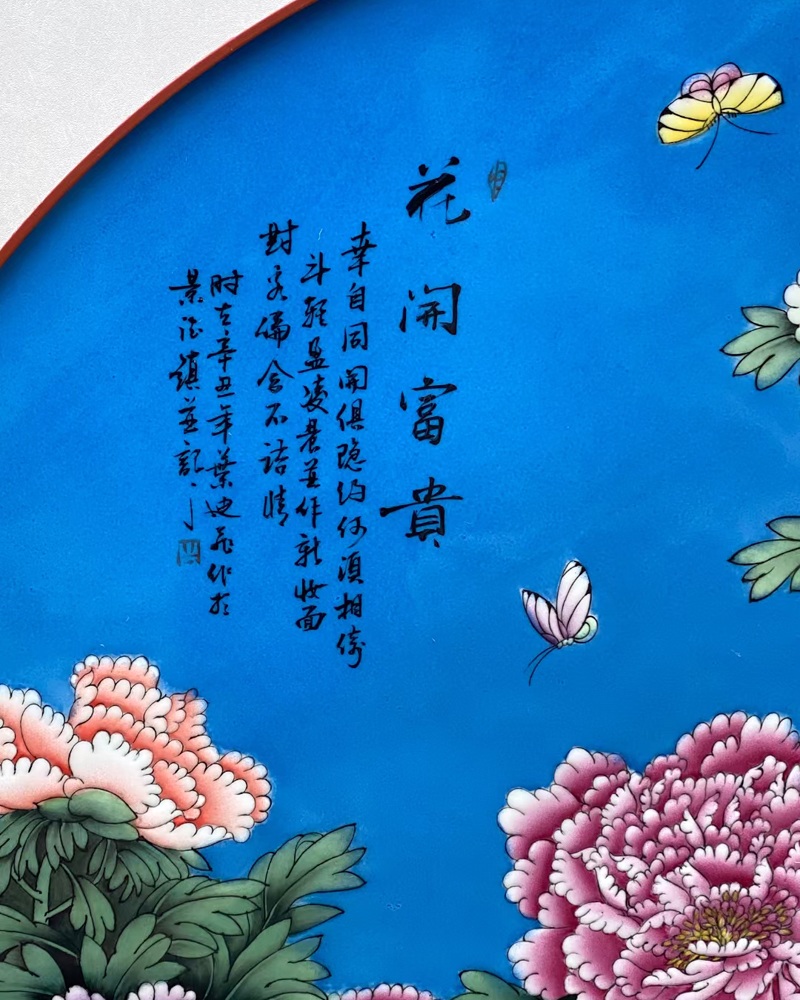 花開富貴
幸自同開俱隐约何須相倚
斗輕盈凌晨並作新妝面
對客偏含不語情
时在辛丑年葉迪飛作於
景德鎮並記